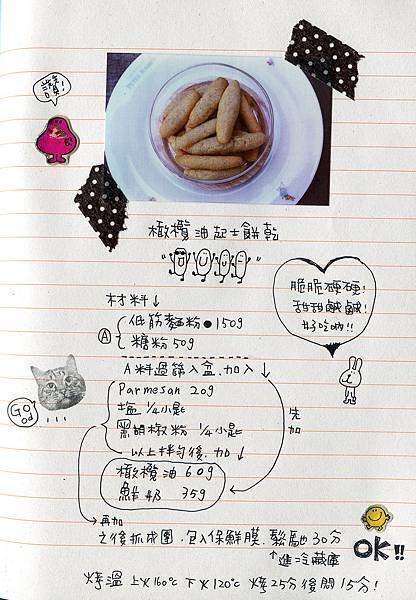 讚!
橄欖油起士餅乾
脆脆硬硬!
甜甜鹹鹹!
好吃喲!!
材料↓
Ⓐ
低筋麵粉 150g
糖粉 50g
A料過篩入盆.加入↓
Parmesan 20g
塩 ¼小匙
黑胡椒粉 ¼小匙
先加
Good
以上拌勻後.加↓
橄欖油 60g
鮮奶 35g
再加
之後抓成團.包入保鮮膜.鬆弛30分
↑進冷藏庫
OK!!
烤溫 上火160℃ 下火120℃ 烤25分後悶15分!